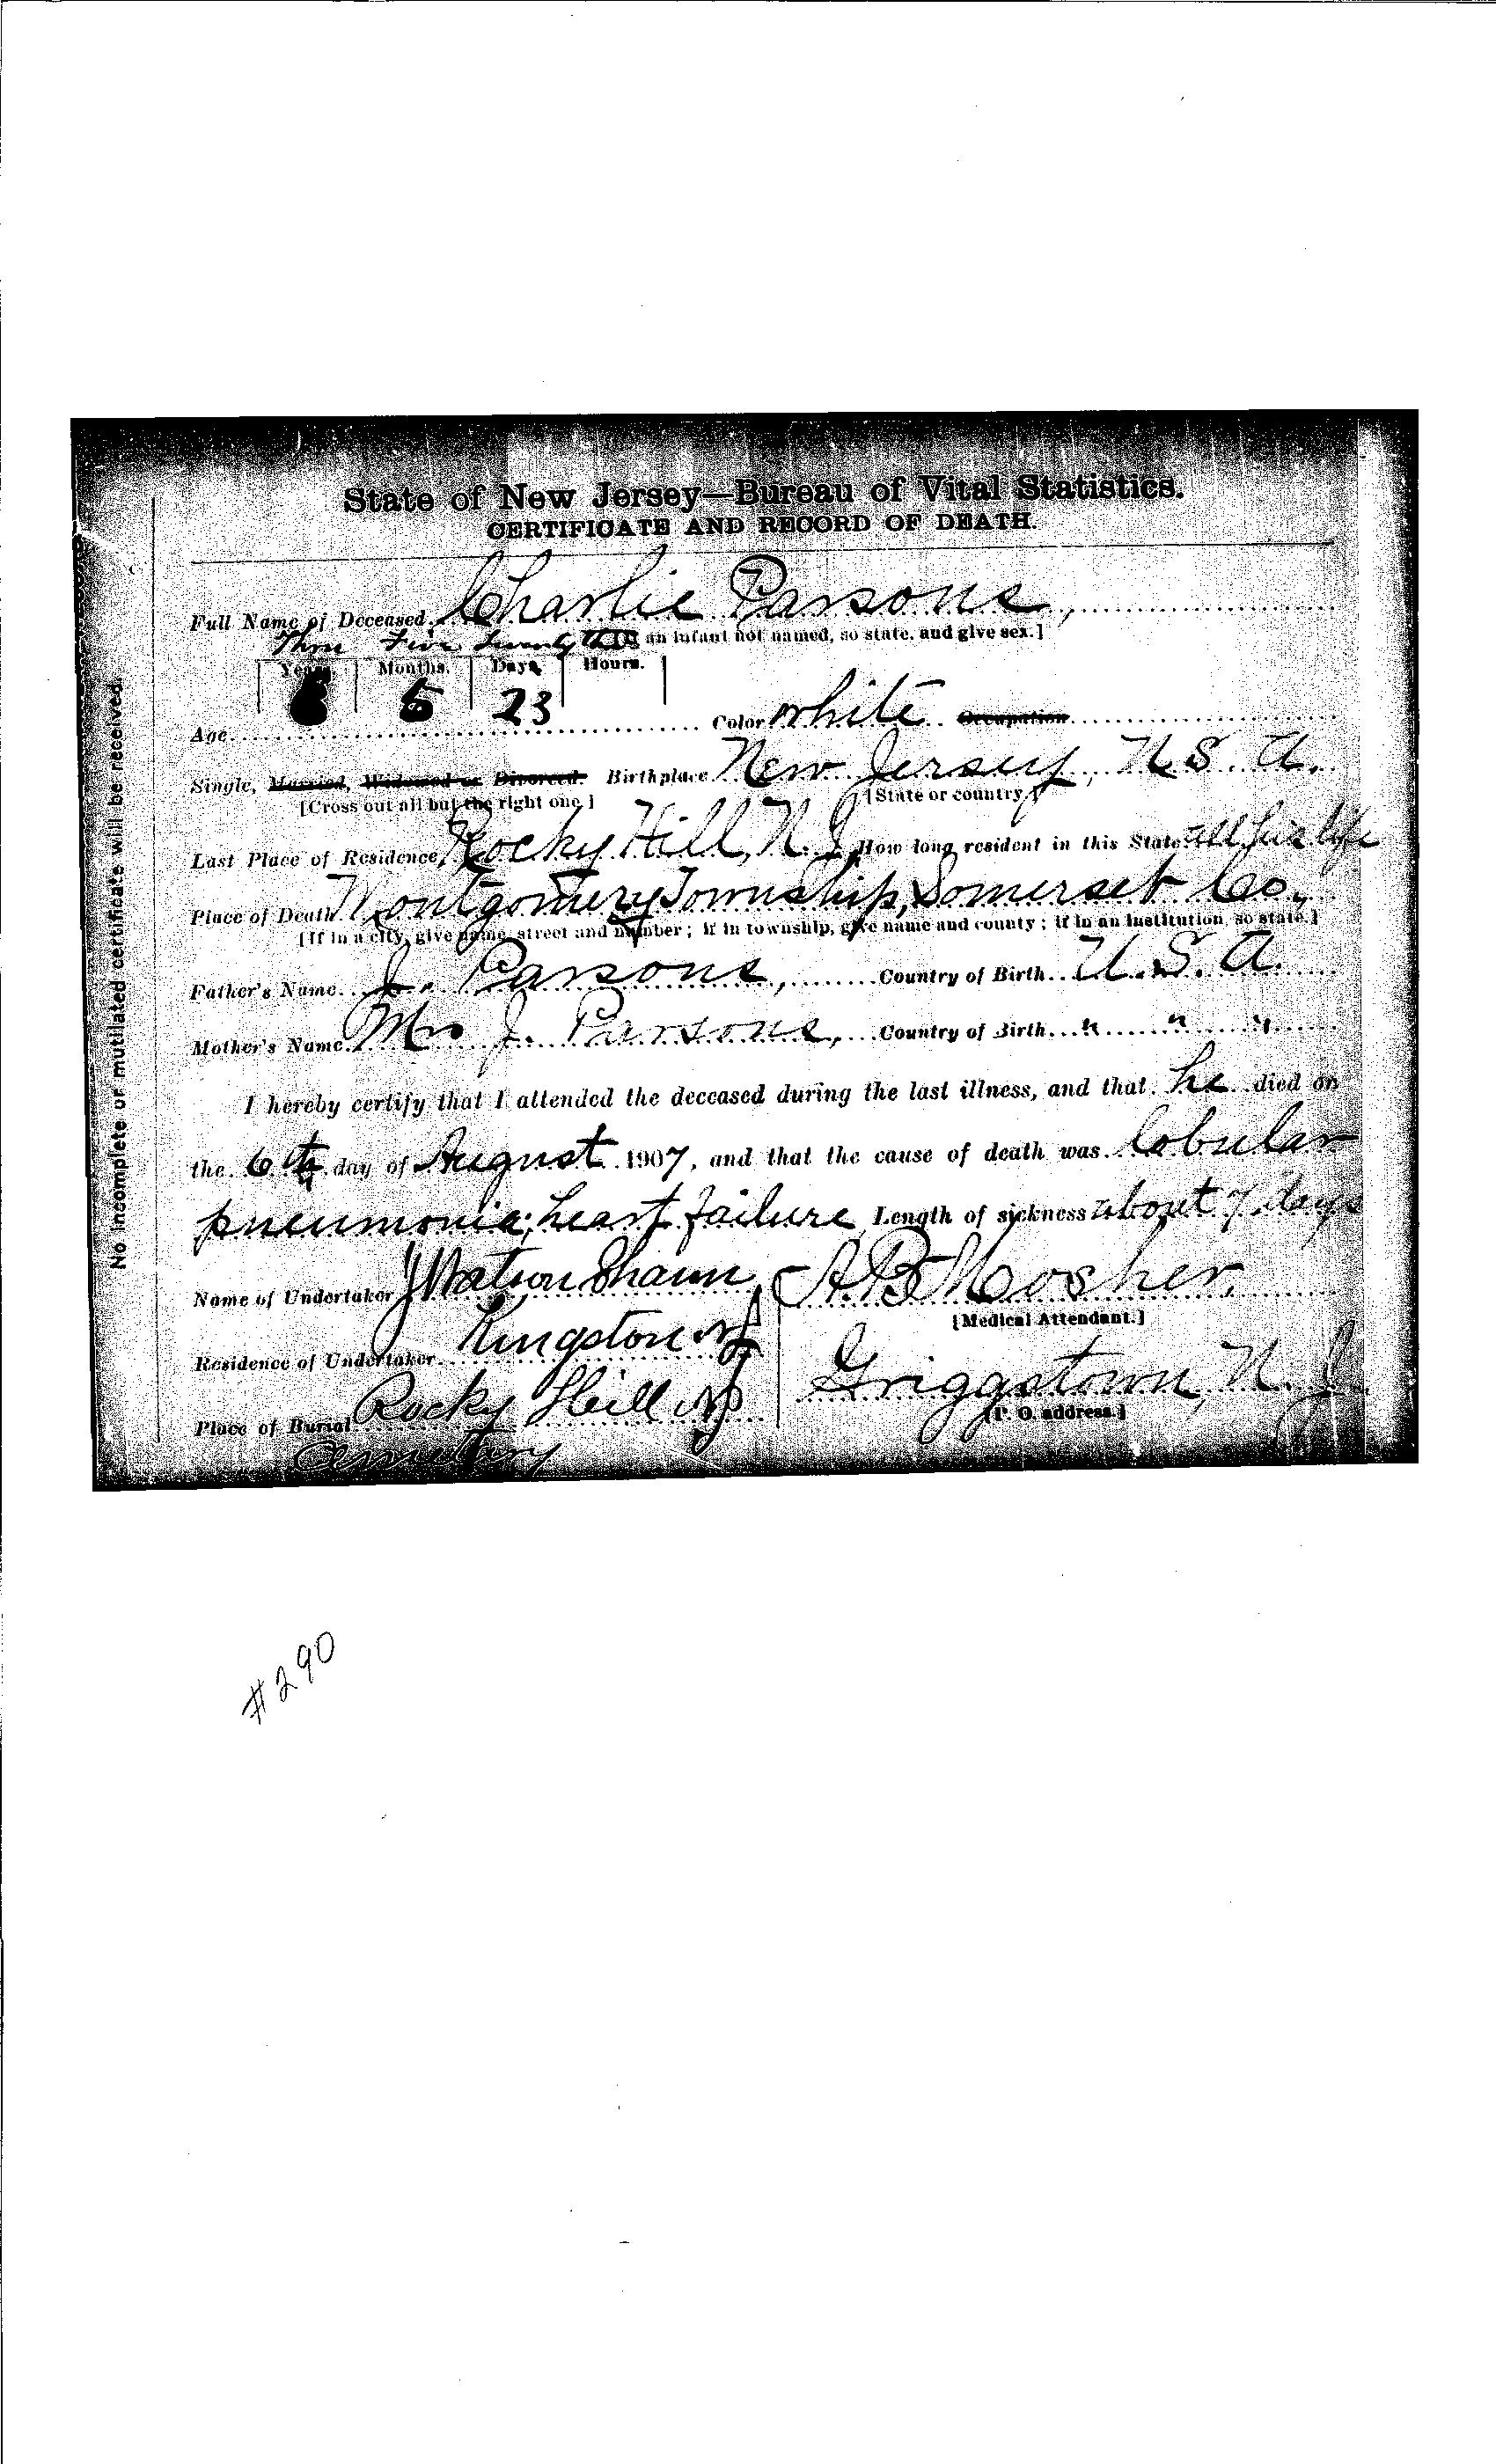 State of New Jersey—Bureau of Vital Statistics.
CERTIFICATE AND RECORD OF DEATH.
Full Name of Deceased Charlie Parsons,
Three Five Twenty three an infant not named, so state, and give sex.]
Years. Months. Days. Hours.
5 23
Age Color white Occupation
Single, Married, Widowed or Divorced. Birthplace New Jersey, U.S.A.
[Cross out all but the right one.] [State or country.]
Last Place of Residence, Rocky Hill, N.J. How long resident in this State all his life
Place of Death Montgomery Township, Somerset Co.,
[If in a city, give name, street and number; if in township, give name and county; if in an institution, so state.]
Father's Name J. Parsons, Country of Birth U.S.A.
Mother's Name Mrs J. Parsons, Country of Birth " " "
I hereby certify that I attended the deceased during the last illness, and that he died on
the 6th day of August 1907, and that the cause of death was lobular
pneumonia; heart failure Length of sickness about 7 days
Name of Undertaker Watson Shann A.B. Mosher,
[Medical Attendant.]
Residence of Undertaker Kingston NJ
Griggstown, N.J.
Place of Burial Rocky Hill NJ [P. O. address.]
Cemetery
No incomplete or mutilated certificate will be received.
#290